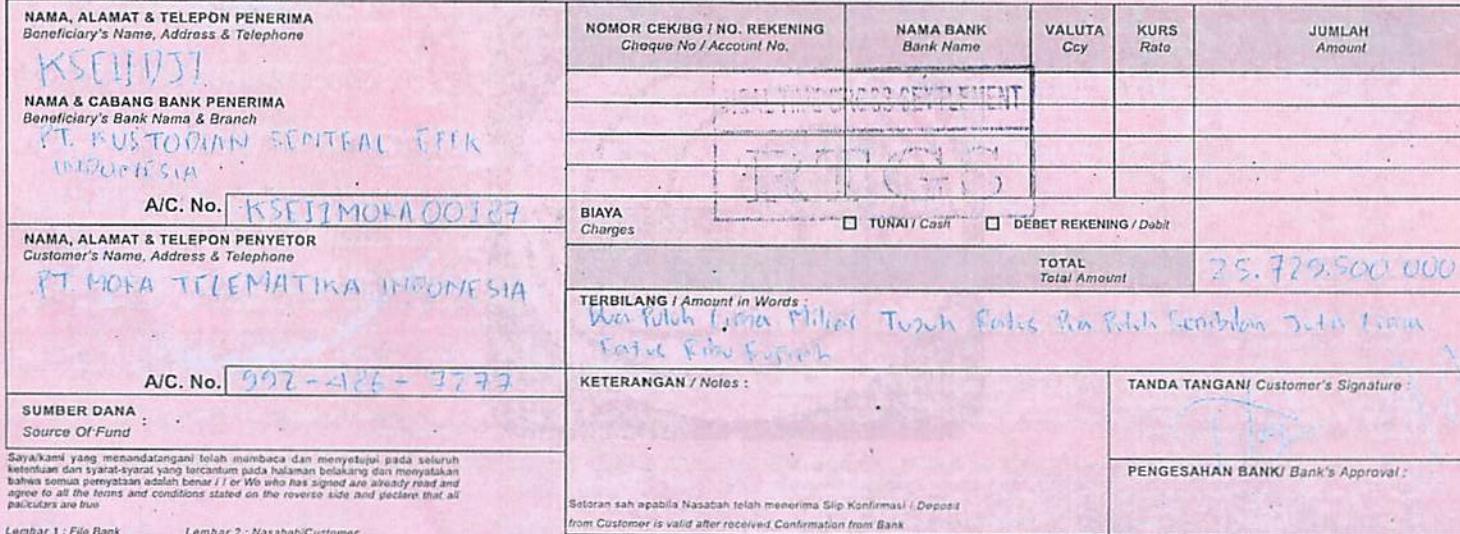 NAMA, ALAMAT & TELEPON PENERIMA
Beneficiary's Name, Address & Telephone
NAMA & CABANG BANK PENERIMA
Beneficiary's Bank Name & Branch
PT. KUSTODIAN SENTRAL EFEK
INDONESIA
A/C. No.
NAMA, ALAMAT & TELEPON PENYETOR
Customer's Name, Address & Telephone
PT. MORA TELEMATIKA INDONESIA
A/C. No.
SUMBER DANA :
Source Of Fund
Saya/kami yang menandatangani telah membaca dan menyetujui pada seluruh
ketentuan dan syarat-syarat yang tercantum pada halaman belakang dan menyatakan
bahwa semua pernyataan adalah benar / I or We who has signed are already read and
agree to all the terms and conditions stated on the reverse side and declare that all
paticulars are true
Lembar 1 : File Bank Lembar 2 : Nasabah/Customer
NOMOR CEK/BG / NO. REKENING
Cheque No / Account No.
NAMA BANK
Bank Name
VALUTA
Ccy
KURS
Rate
JUMLAH
Amount
REAL TIME GROSS SETTLEMENT
BIAYA
Charges
TUNAI / Cash
DEBET REKENING / Debit
TOTAL
Total Amount
25.729.500.000
TERBILANG / Amount in Words :
Dua Puluh Lima Miliar Tujuh Ratus Dua Puluh Sembilan Juta Lima
Ratus Ribu Rupiah
KETERANGAN / Notes :
Setoran sah apabila Nasabah telah menerima Slip Konfirmasi / Deposit
from Customer is valid after received Confirmation from Bank
TANDA TANGAN/ Customer's Signature :
PENGESAHAN BANK/ Bank's Approval :